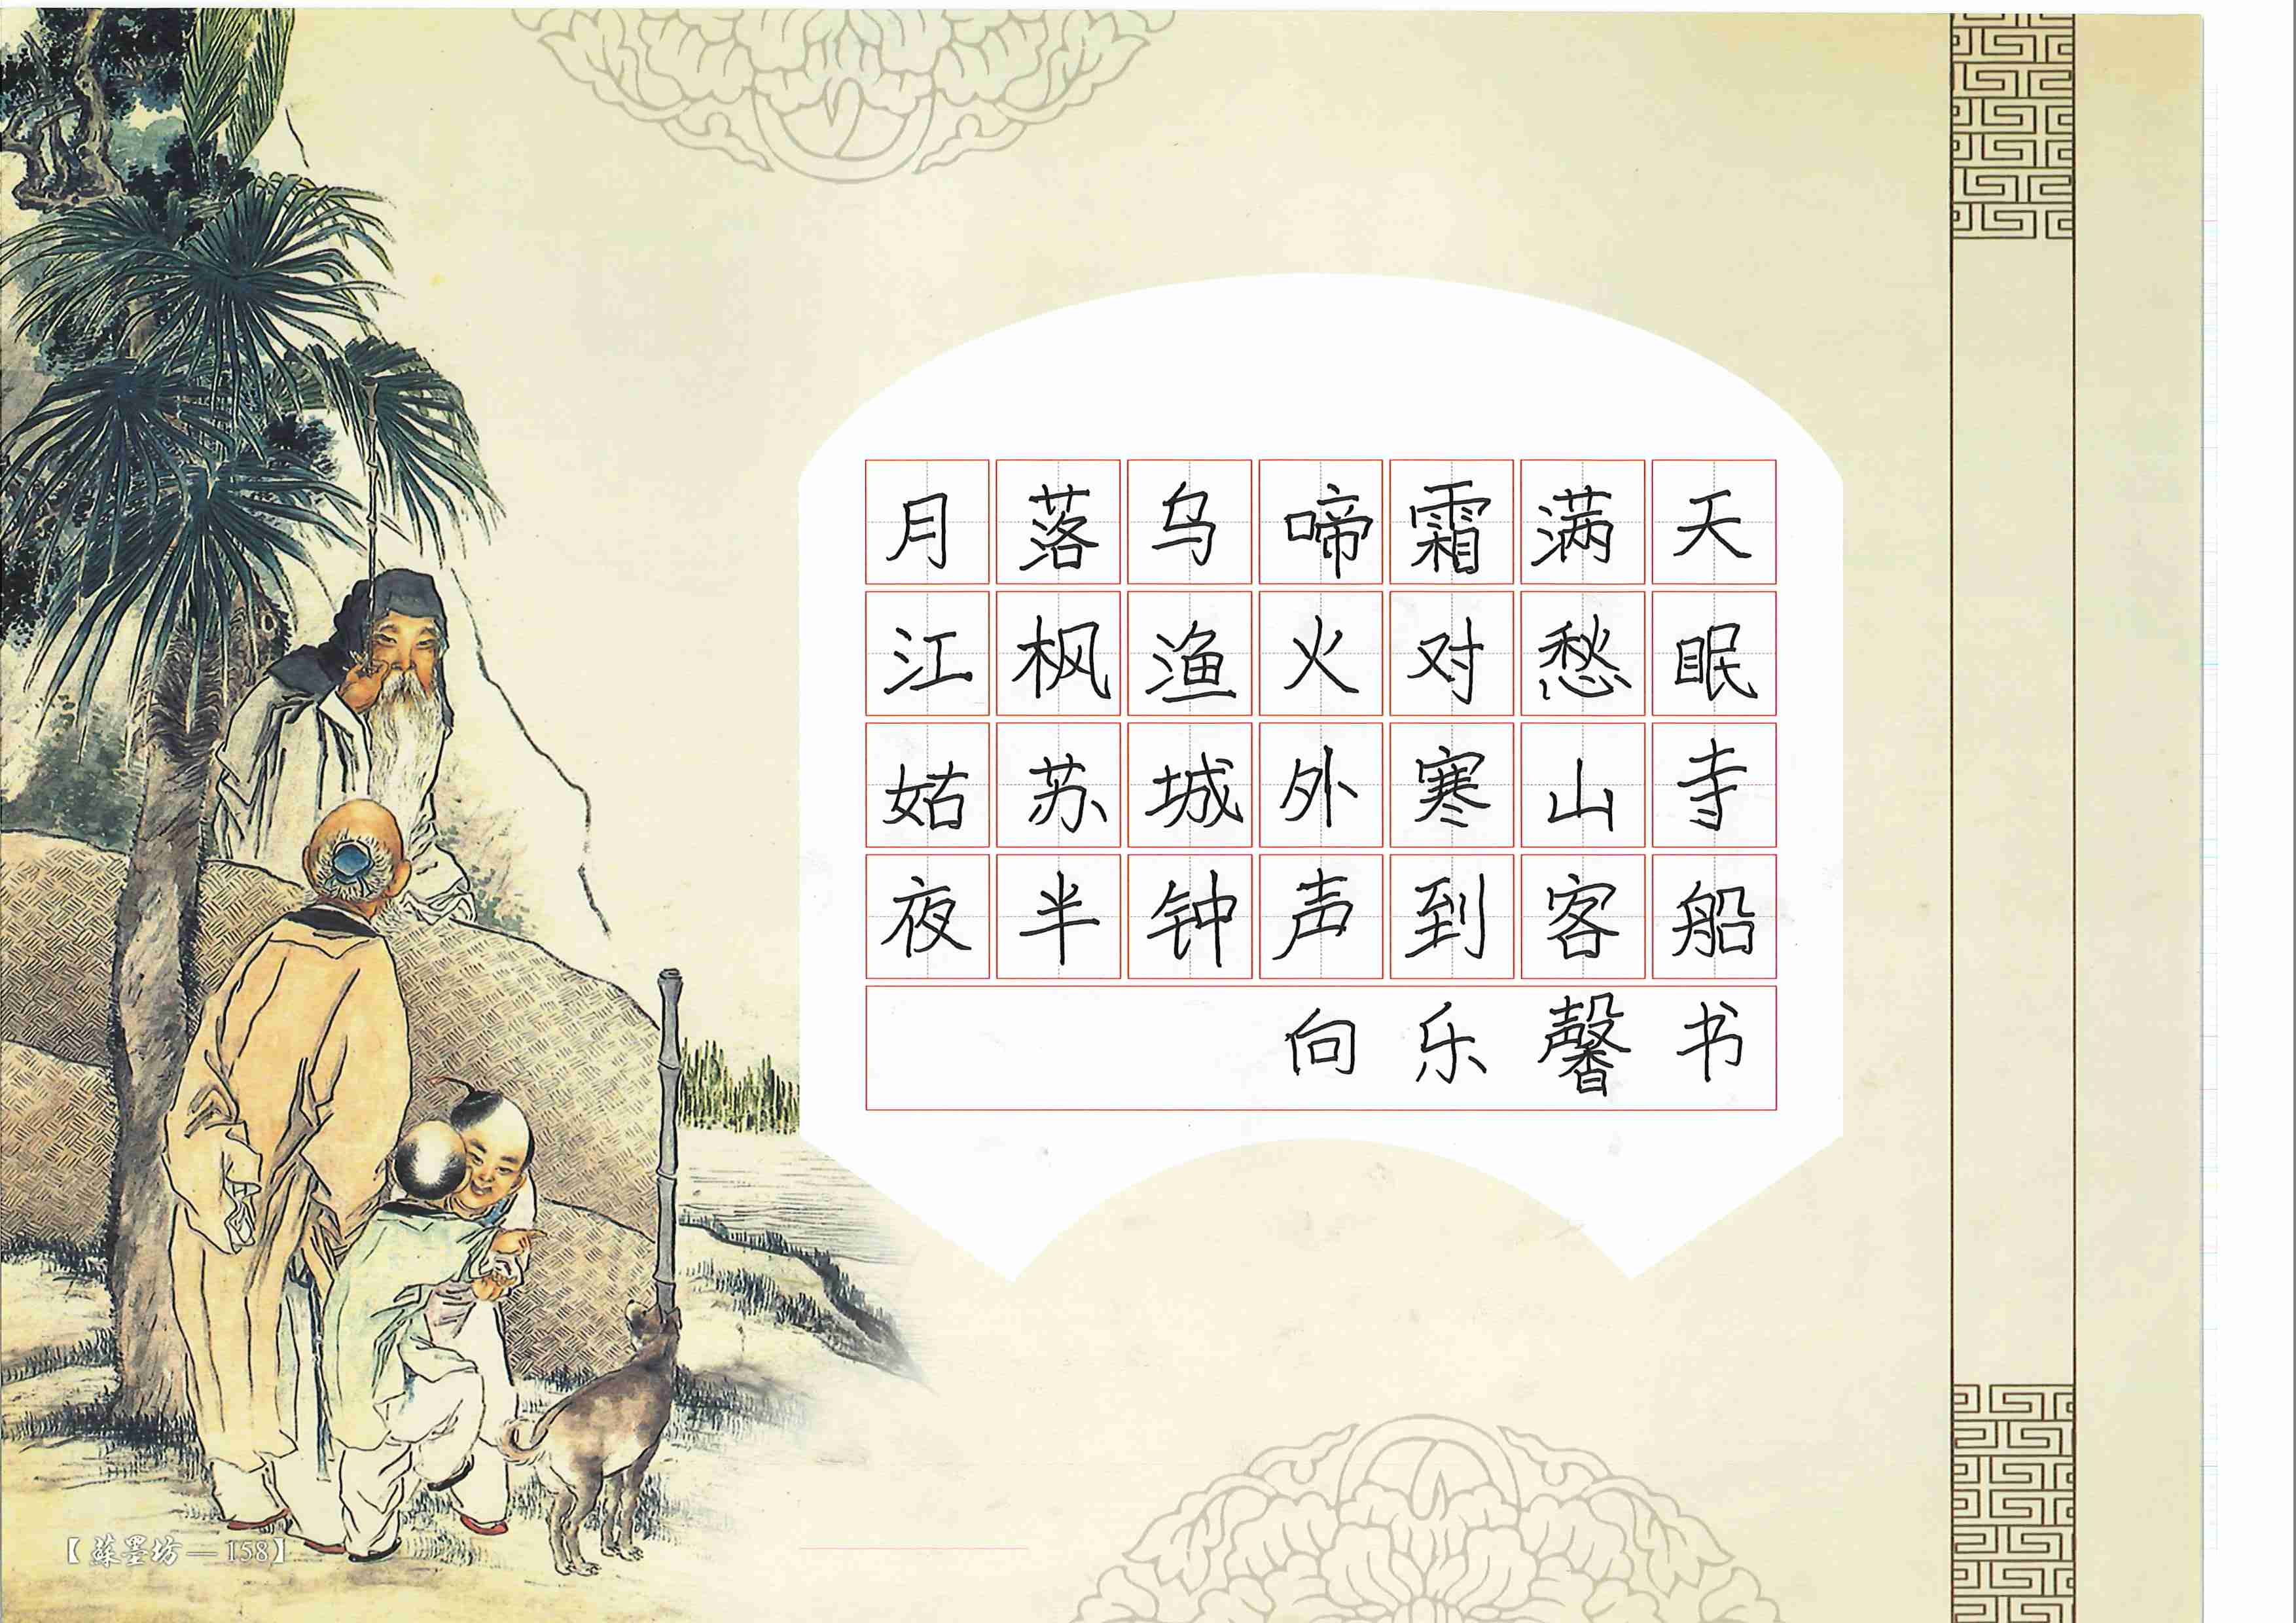 月落乌啼霜满天
江枫渔火对愁眠
姑苏城外寒山寺
夜半钟声到客船
向乐馨书
【苏墨坊—158】